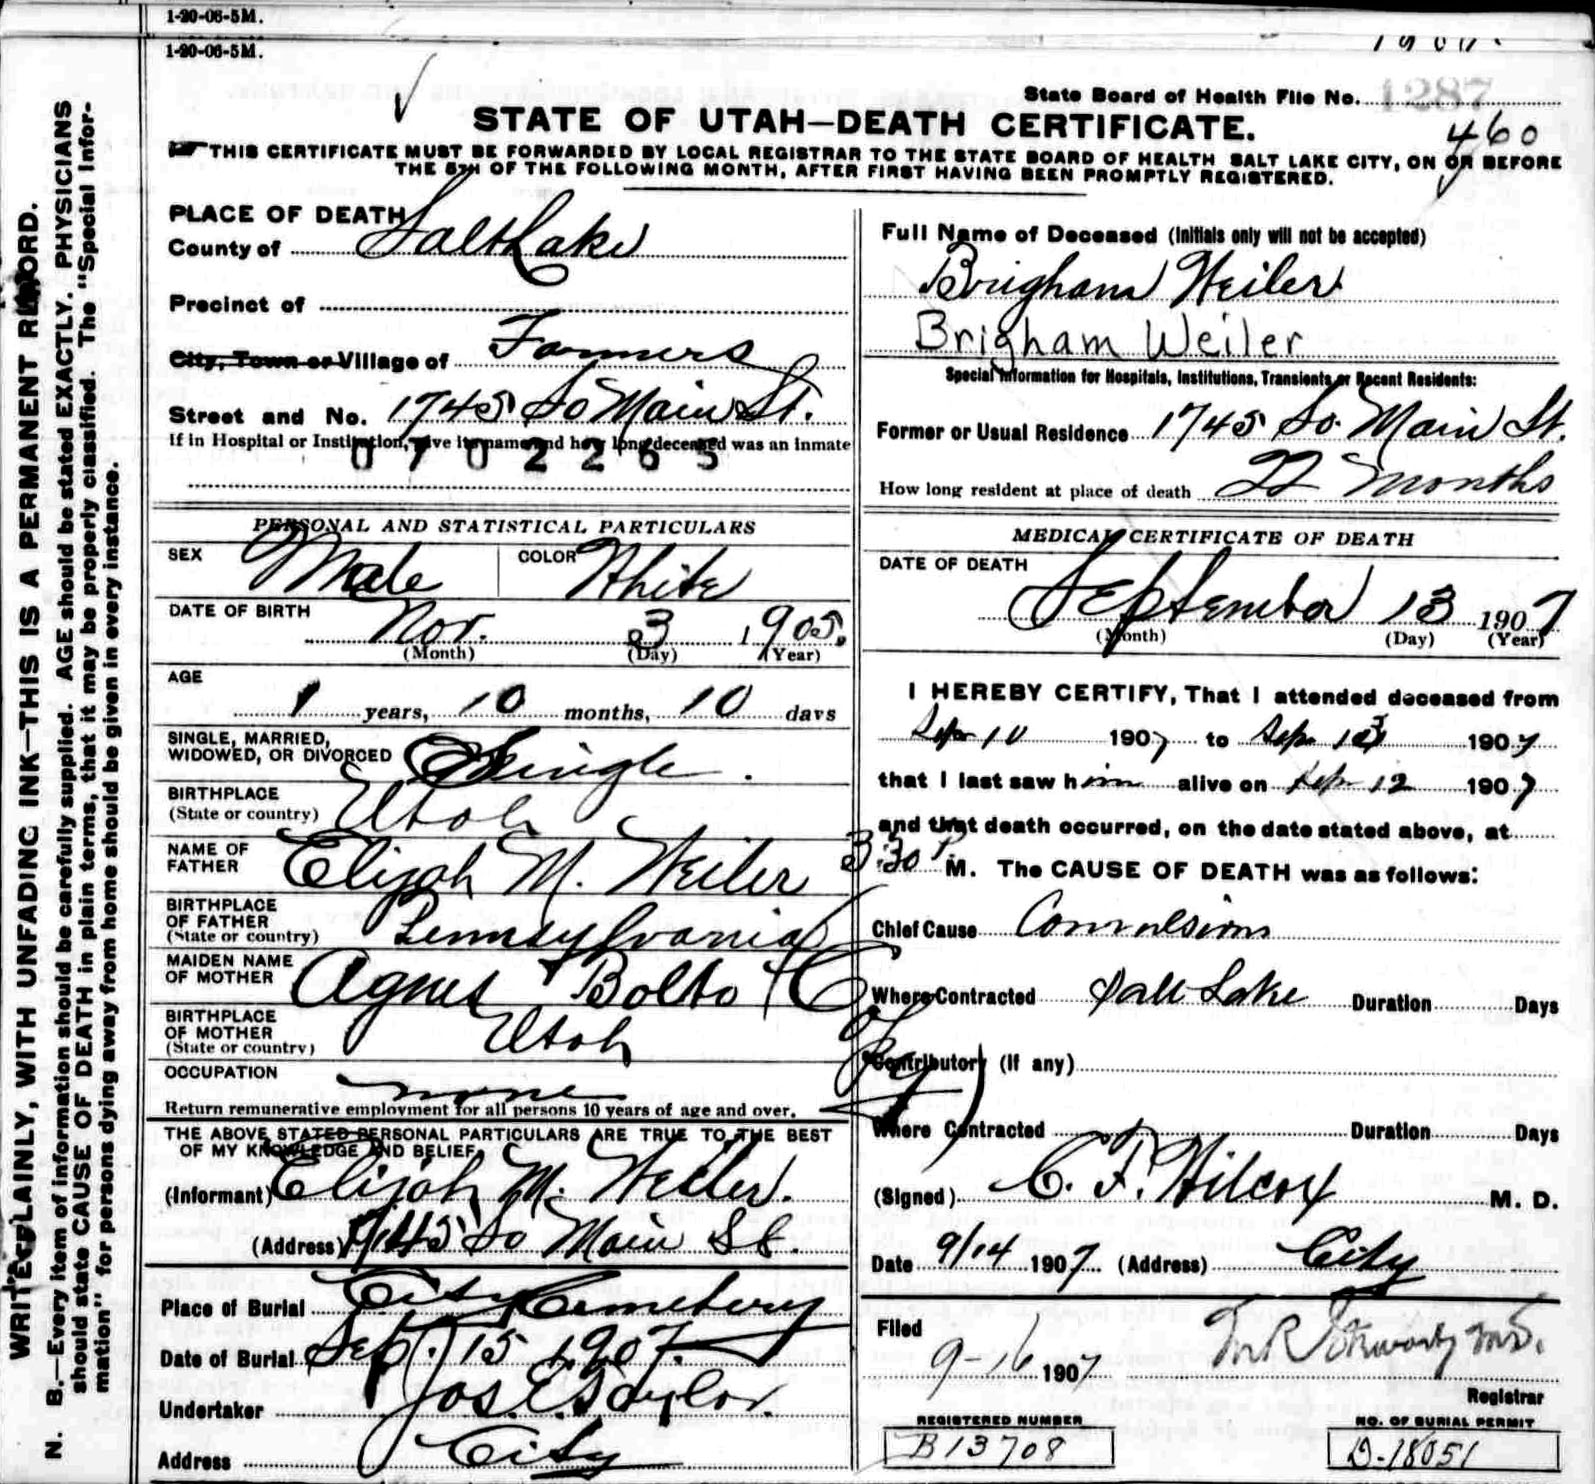 1-20-06-5M.
1-20-06-5M.
State Board of Health File No. 1287
460
STATE OF UTAH—DEATH CERTIFICATE.
THIS CERTIFICATE MUST BE FORWARDED BY LOCAL REGISTRAR TO THE STATE BOARD OF HEALTH SALT LAKE CITY, ON OR BEFORE
THE 5TH OF THE FOLLOWING MONTH, AFTER FIRST HAVING BEEN PROMPTLY REGISTERED.
WRITE PLAINLY, WITH UNFADING INK—THIS IS A PERMANENT RECORD.
N. B.—Every item of information should be carefully supplied. AGE should be stated EXACTLY. PHYSICIANS
should state CAUSE OF DEATH in plain terms, that it may be properly classified. The "Special Infor-
mation" for persons dying away from home should be given in every instance.
PLACE OF DEATH
County of Salt Lake
Precinct of
City, Town or Village of Farmers
Street and No. 1745 So Main St.
If in Hospital or Institution, give its name and how long deceased was an inmate
0702265
PERSONAL AND STATISTICAL PARTICULARS
SEX Male COLOR White
DATE OF BIRTH Nov. 3 1905.
(Month) (Day) (Year)
AGE
1 years, 10 months, 10 days
SINGLE, MARRIED,
WIDOWED, OR DIVORCED Single.
BIRTHPLACE
(State or country) Utah
NAME OF
FATHER Elijah M. Weiler
BIRTHPLACE
OF FATHER
(State or country) Pennsylvania
MAIDEN NAME
OF MOTHER Agnes Bolto
BIRTHPLACE
OF MOTHER
(State or country) Utah
OCCUPATION none
Return remunerative employment for all persons 10 years of age and over.
THE ABOVE STATED PERSONAL PARTICULARS ARE TRUE TO THE BEST
OF MY KNOWLEDGE AND BELIEF
(Informant) Elijah M. Weiler.
(Address) 1745 So Main St.
Place of Burial City Cemetery
Date of Burial Sep. 15 1907.
Undertaker Jos. E. Taylor.
Address City
Full Name of Deceased (Initials only will not be accepted)
Brigham Weiler
Brigham Weiler
Special Information for Hospitals, Institutions, Transients or Recent Residents:
Former or Usual Residence 1745 So. Main St.
How long resident at place of death 22 months
MEDICAL CERTIFICATE OF DEATH
DATE OF DEATH
September 13 1907
(Month) (Day) (Year)
I HEREBY CERTIFY, That I attended deceased from
Sep 10 1907 to Sep 13 1907
that I last saw him alive on Sep 12 1907
and that death occurred, on the date stated above, at
3:30 P M. The CAUSE OF DEATH was as follows:
Chief Cause Convulsions
Where Contracted Salt Lake Duration Days
Contributory (If any)
Where Contracted Duration Days
(Signed) C. F. Wilcox M. D.
Date 9/14 1907 (Address) City
Filed
9-16 1907
Registrar
REGISTERED NUMBER
B13708
NO. OF BURIAL PERMIT
D-18051